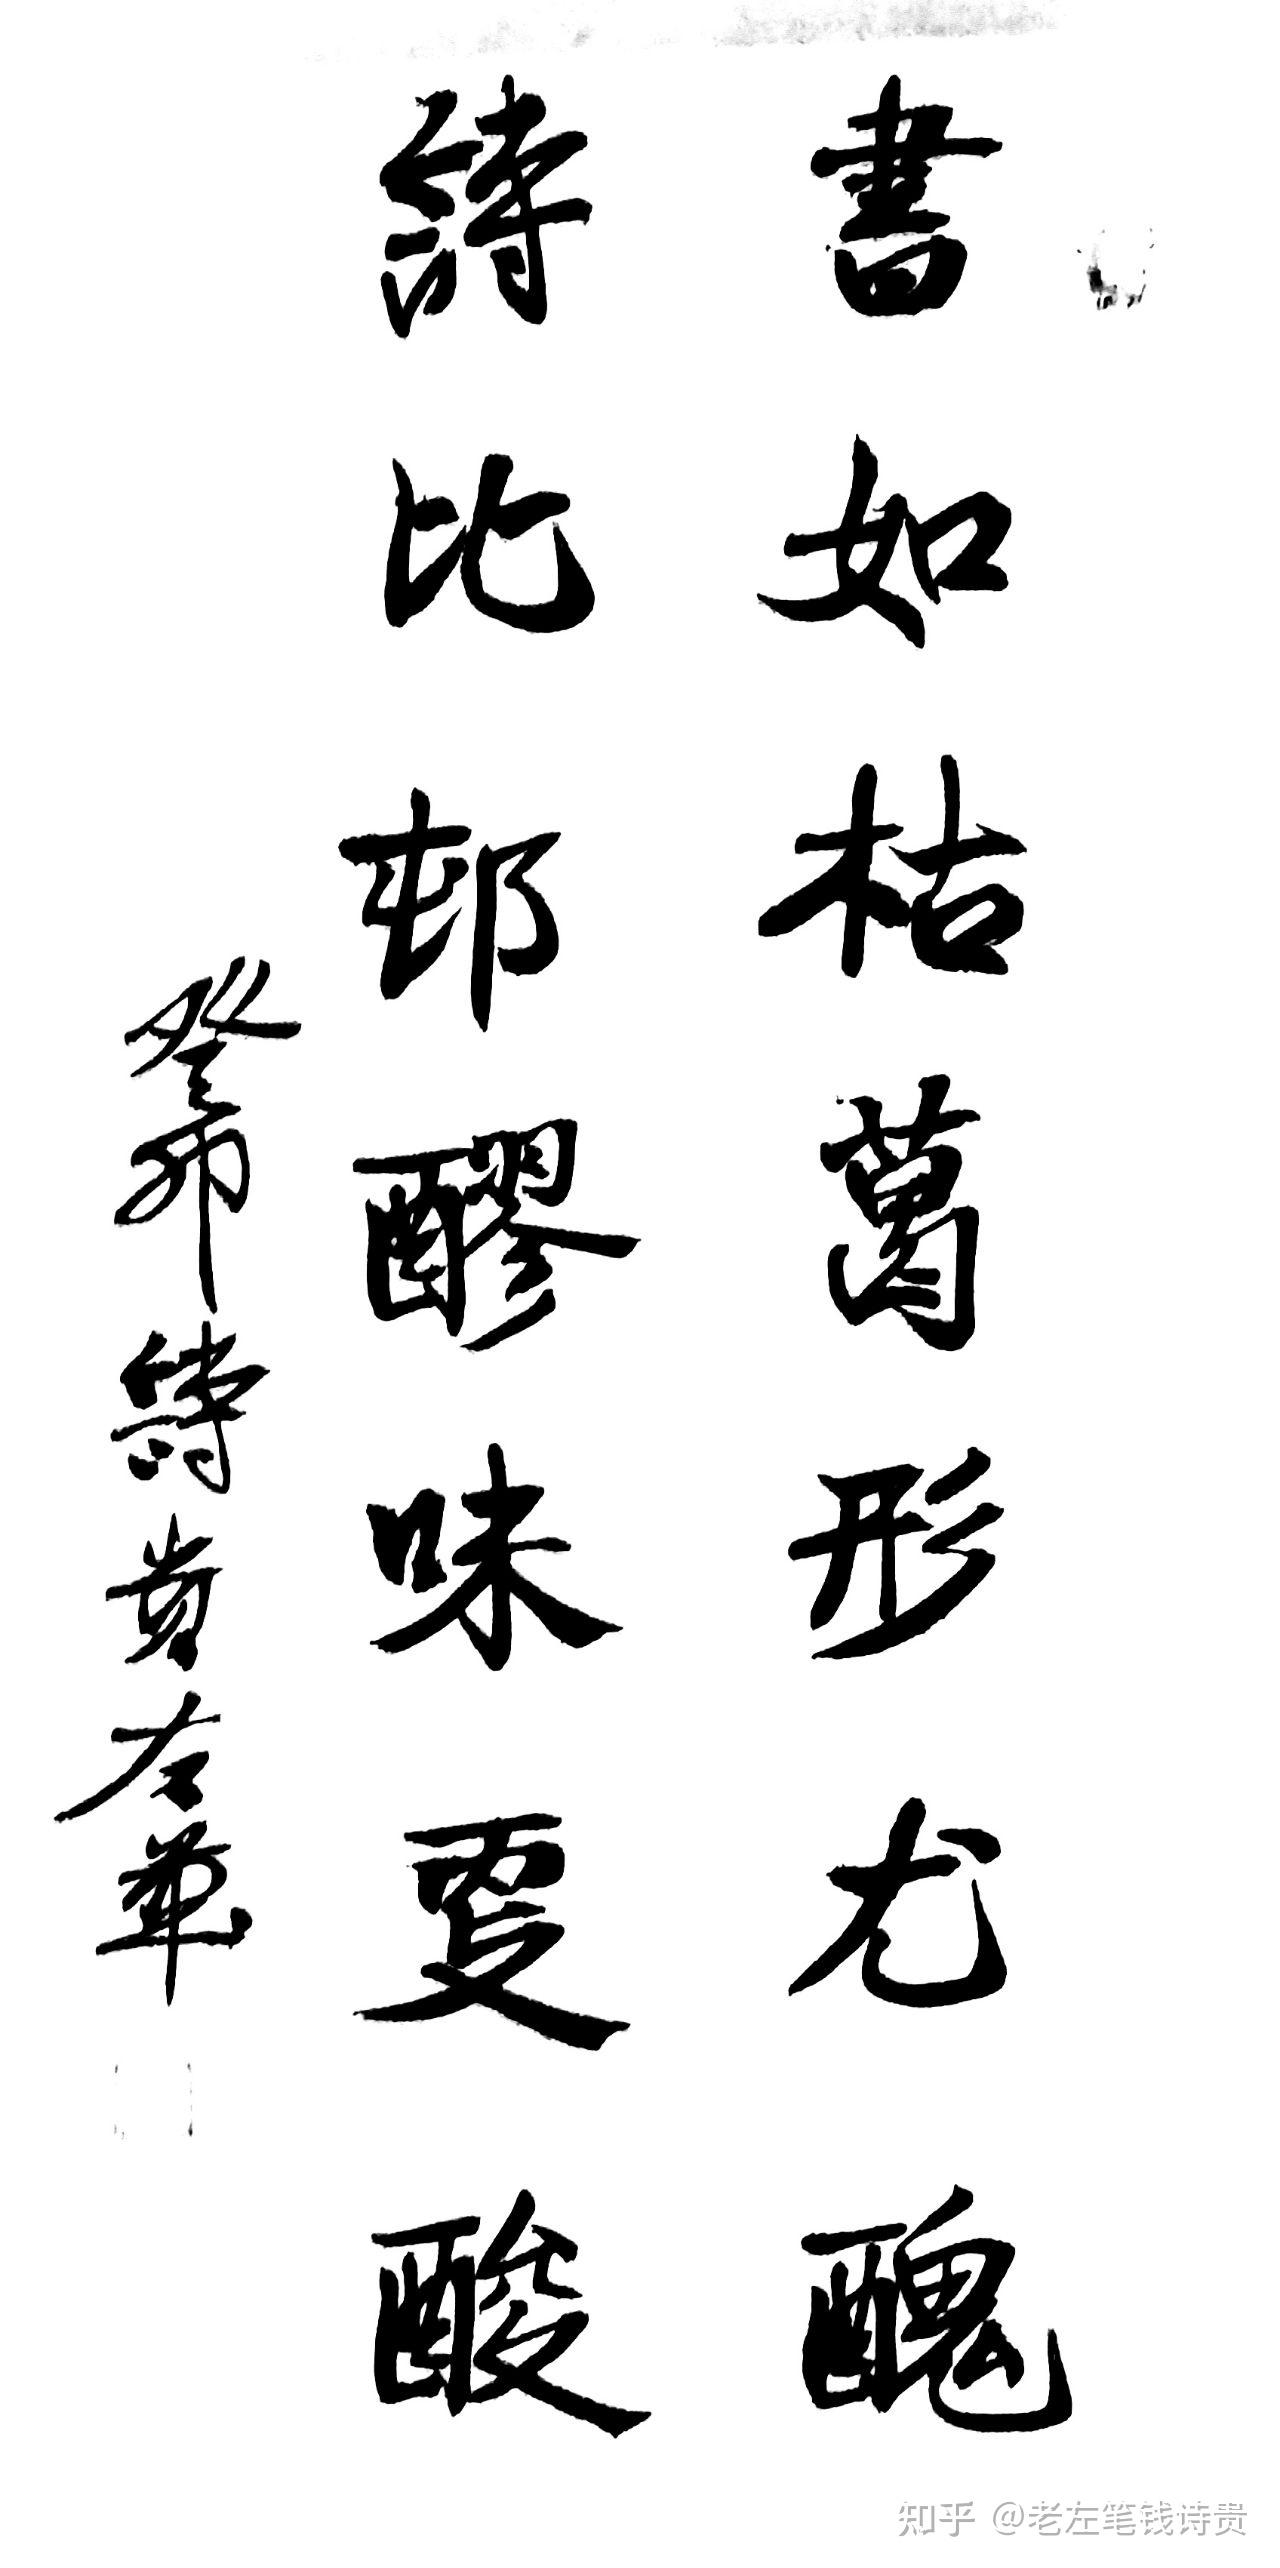 書如枯葛形尤醜
詩比邨醪味更酸
癸卯詩貴左筆
知乎 @老左笔钱诗贵